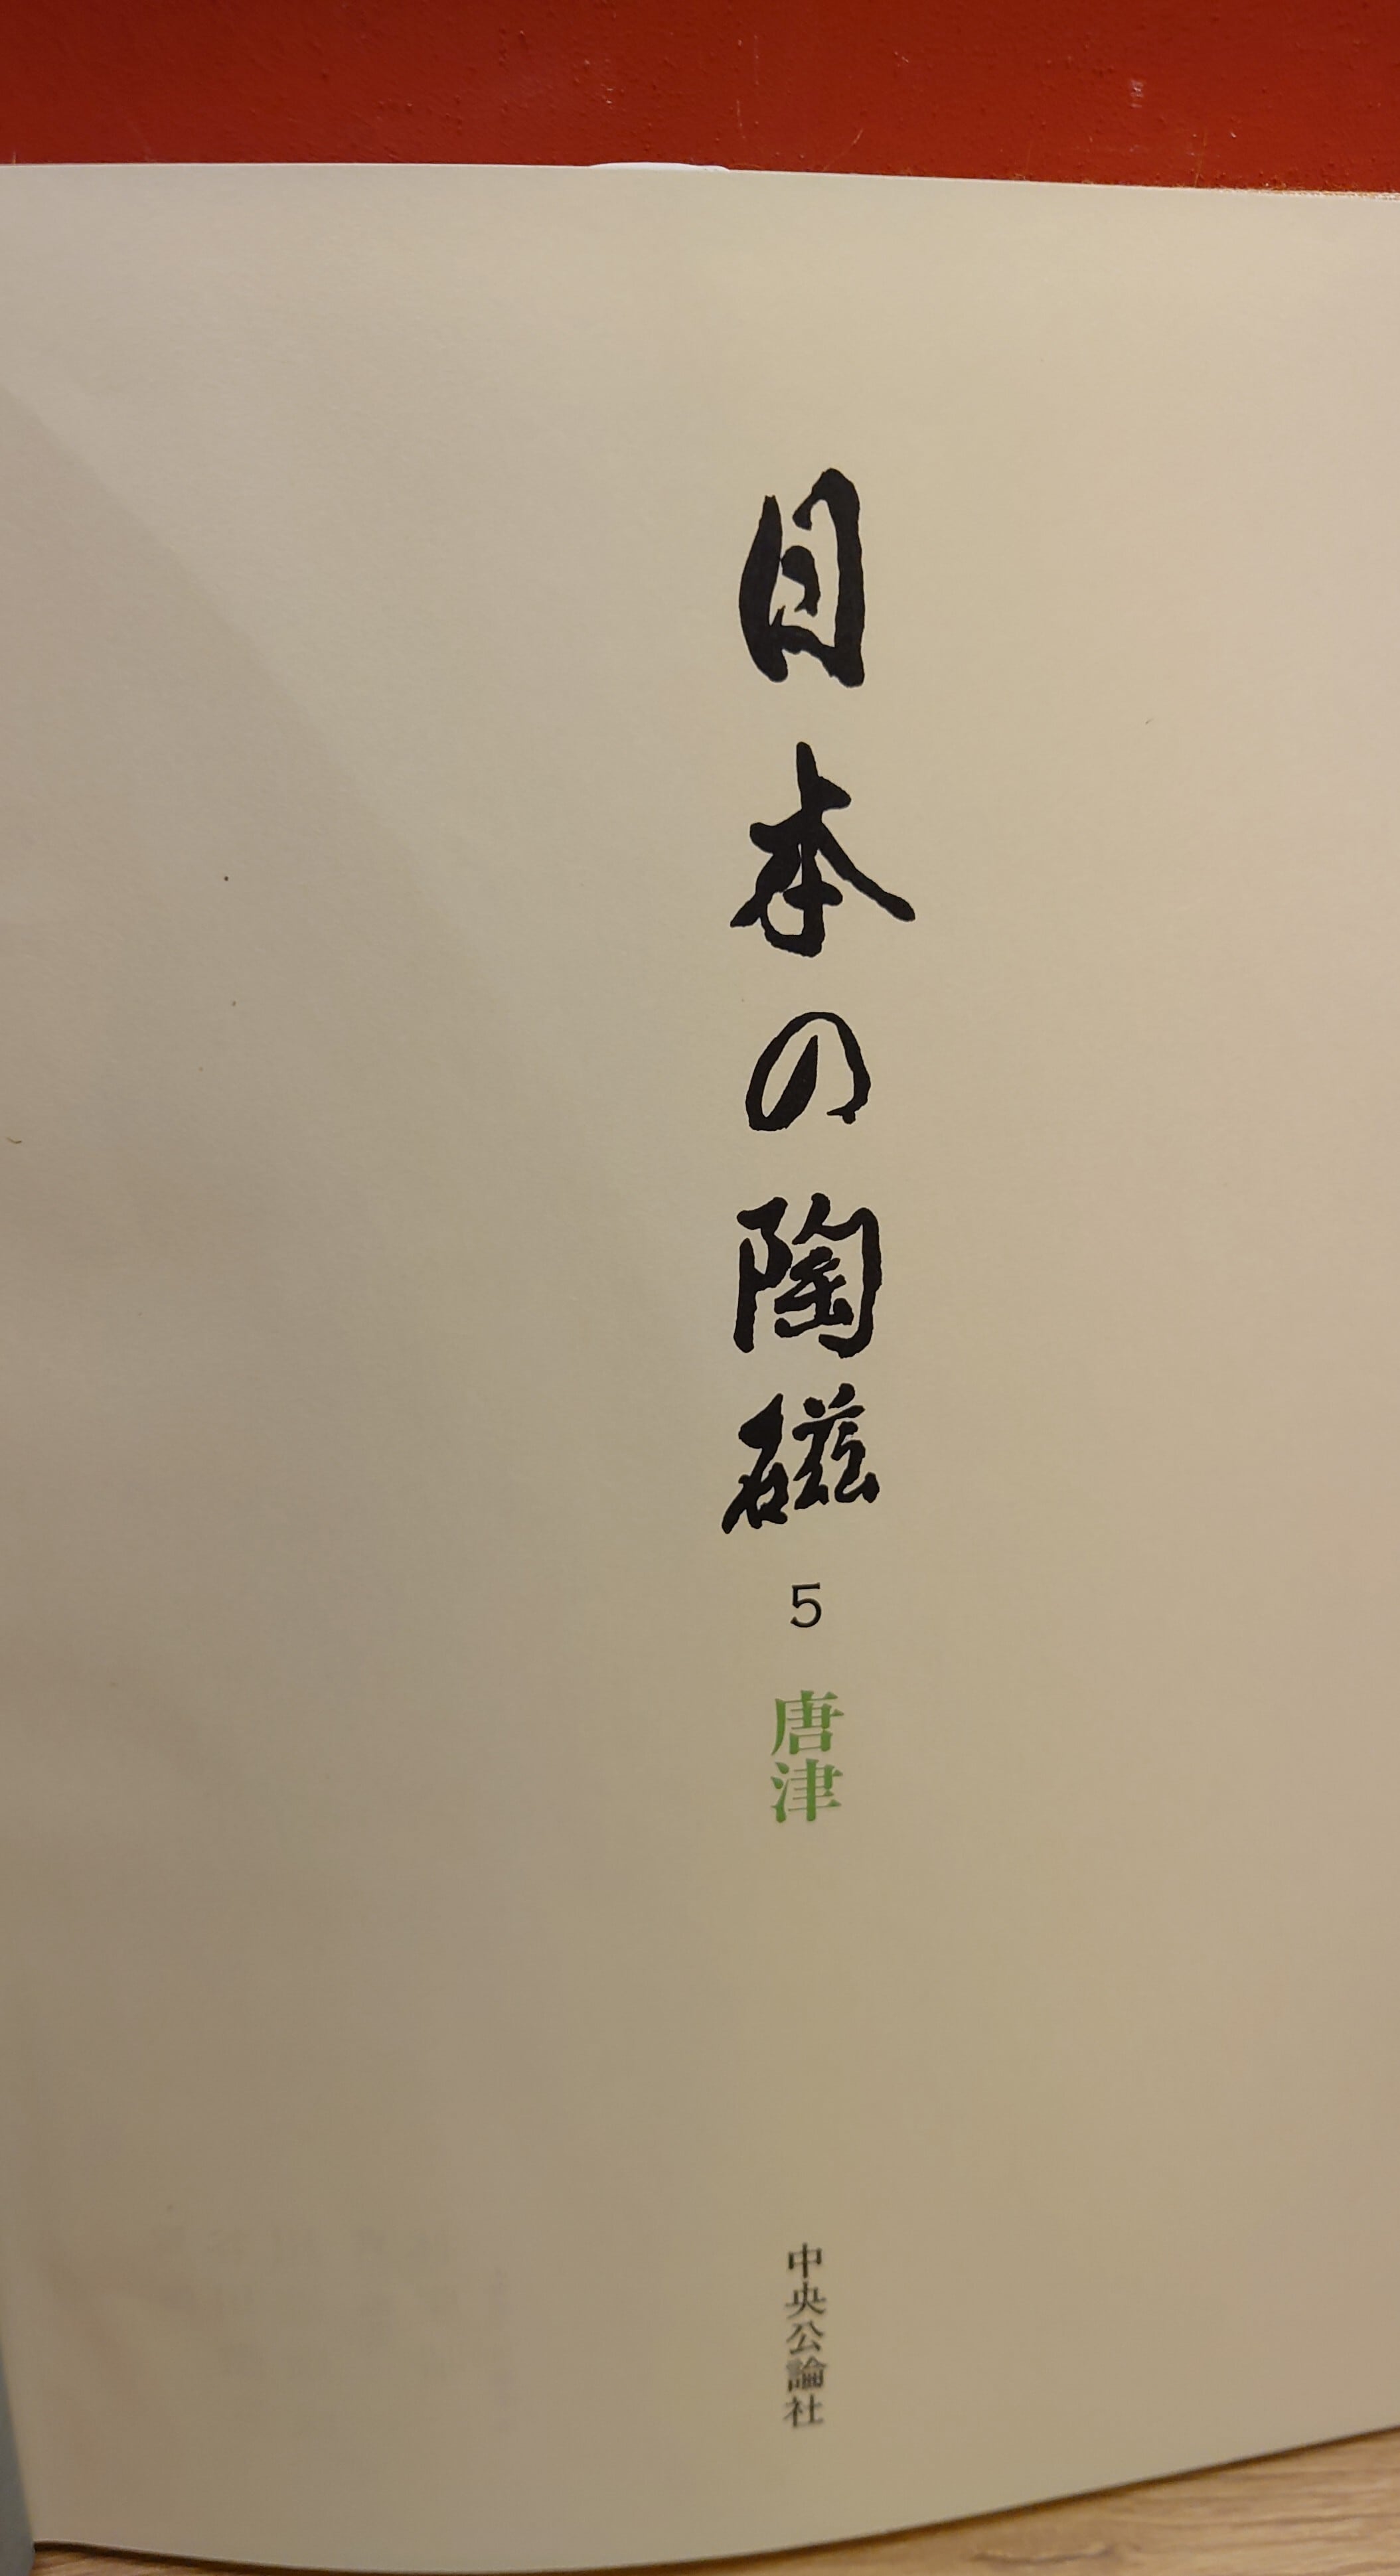 日本の陶磁
5
唐津
中央公論社